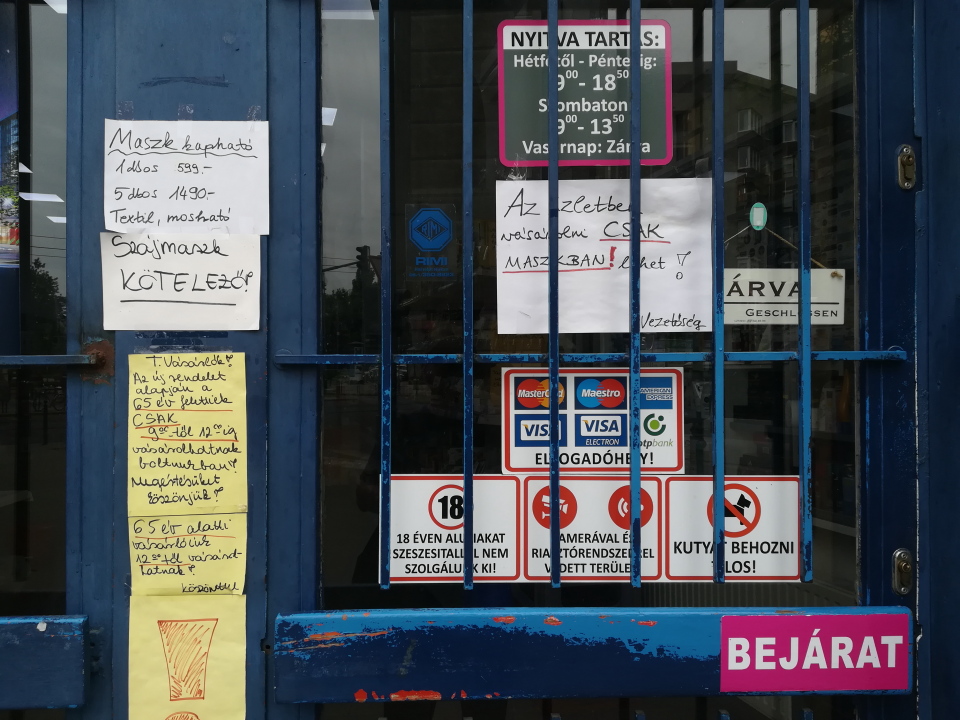 Maszk kapható
1 dbos 599.-
5 dbos 1490.-
Textil, mosható
Szájmaszk
KÖTELEZŐ!
T. Vásárlók!
Az új rendelet
alapján a
65 év felettiek
CSAK
9⁰⁰-től 12⁰⁰-ig
vásárolhatnak
boltunkban!
Megértésüket
köszönjük!
65 év alatti
vásárlóink
12⁰⁰-től vásárol
hatnak!
NYITVA TARTÁS:
Hétfőtől - Péntekig:
9⁰⁰ - 18⁵⁰
Szombaton
9⁰⁰ - 13⁵⁰
Vasárnap: Zárva
Az üzletben
vásárolni CSAK
MASZKBAN! lehet!
Vezetőség
RIMI
ÁRVA
GESCHLOSSEN
MasterCard
Maestro
AMERICAN EXPRESS
VISA
VISA
ELECTRON
otpbank
ELFOGADÓHELY!
18
18 ÉVEN ALULIAKAT
SZESZESITALLAL NEM
SZOLGÁLUNK KI!
KAMERÁVAL ÉS
RIASZTÓRENDSZERREL
VÉDETT TERÜLET
KUTYÁT BEHOZNI
TILOS!
BEJÁRAT